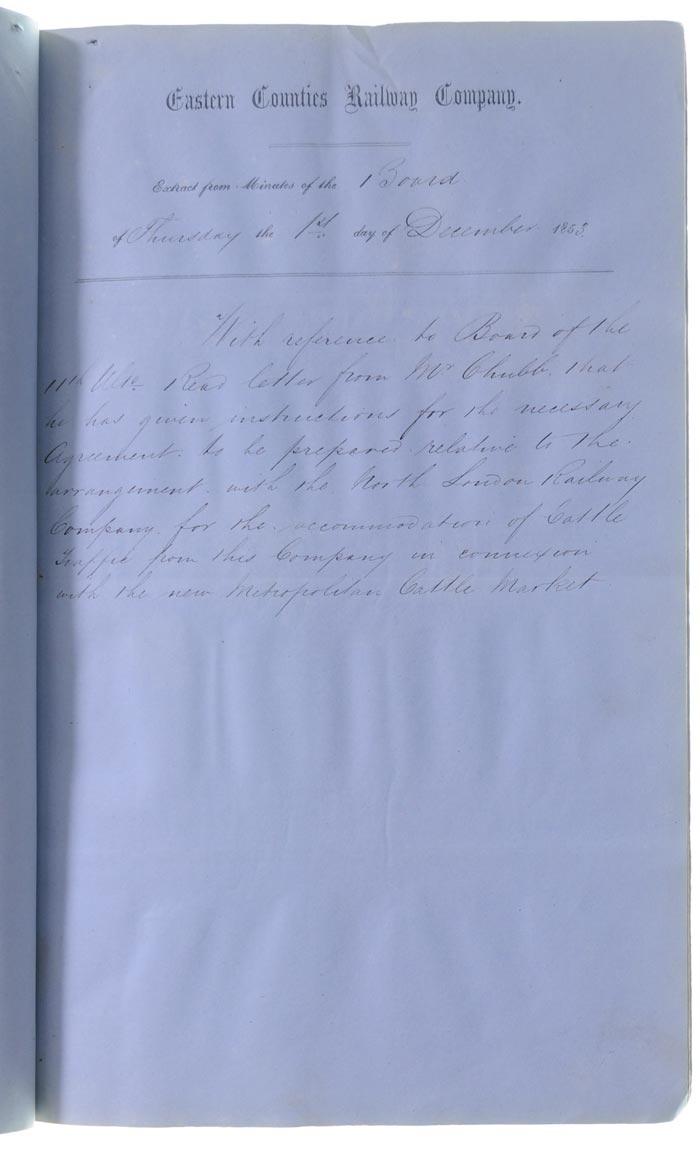 Eastern Counties Railway Company.
Extract from Minutes of the Board
of Thursday the 1st day of December 1853
With reference to Board of the
11th Ulto. Read letter from Mr Chubb, that
he has given instructions for the necessary
Agreement to be prepared relative to the
arrangement with the North London Railway
Company for the accommodation of Cattle
Traffic from this Company in connexion
with the new Metropolitan Cattle Market